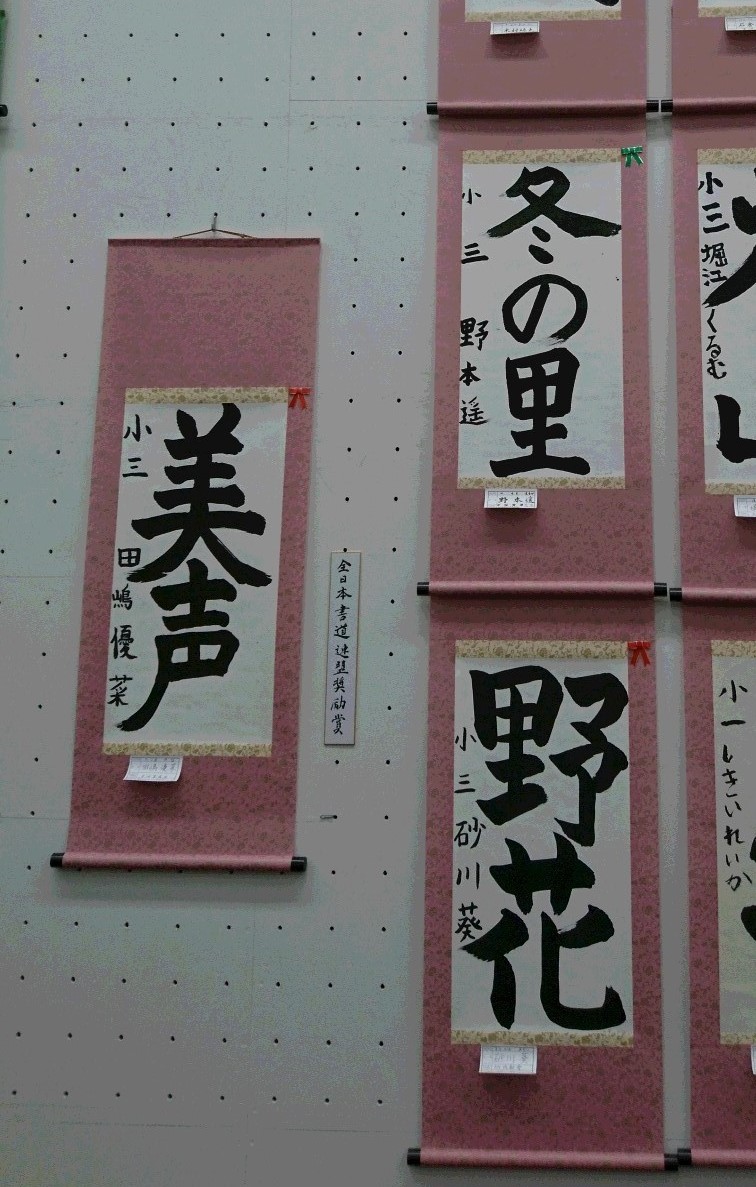 美声
小三 田嶋優菜
全日本書道連盟奨励賞
冬の里
小三 野本遥
野花
小三 砂川葵
小三 堀江くるむ
小一 しきいれいか